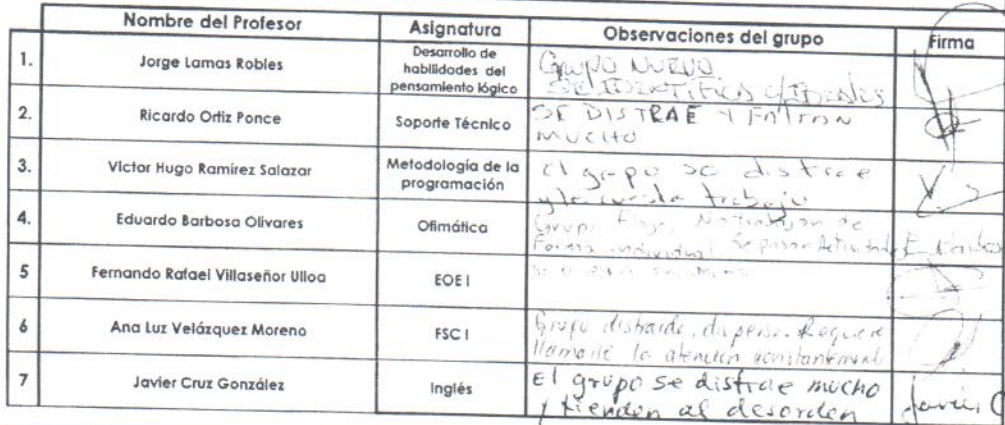 Nombre del Profesor Asignatura Observaciones del grupo Firma
1. Jorge Lamas Robles Desarrollo de habilidades del pensamiento lógico GRUPO NUEVO
SE IDENTIFICA
2. Ricardo Ortiz Ponce Soporte Técnico SE DISTRAE Y FALTAN
MUCHO
3. Victor Hugo Ramírez Salazar Metodología de la programación El grupo se distrae
y le cuesta trabajo
4. Eduardo Barbosa Olivares Ofimática Grupo Flojo, No trabajan de
Forma individual Se pasan Actividades
5 Fernando Rafael Villaseñor Ulloa EOE I
6 Ana Luz Velázquez Moreno FSC I Grupo distraído, disperso. Requiere
llamarle la atención constantemente
7 Javier Cruz González Inglés El grupo se distrae mucho
y tienden al desorden Javier C